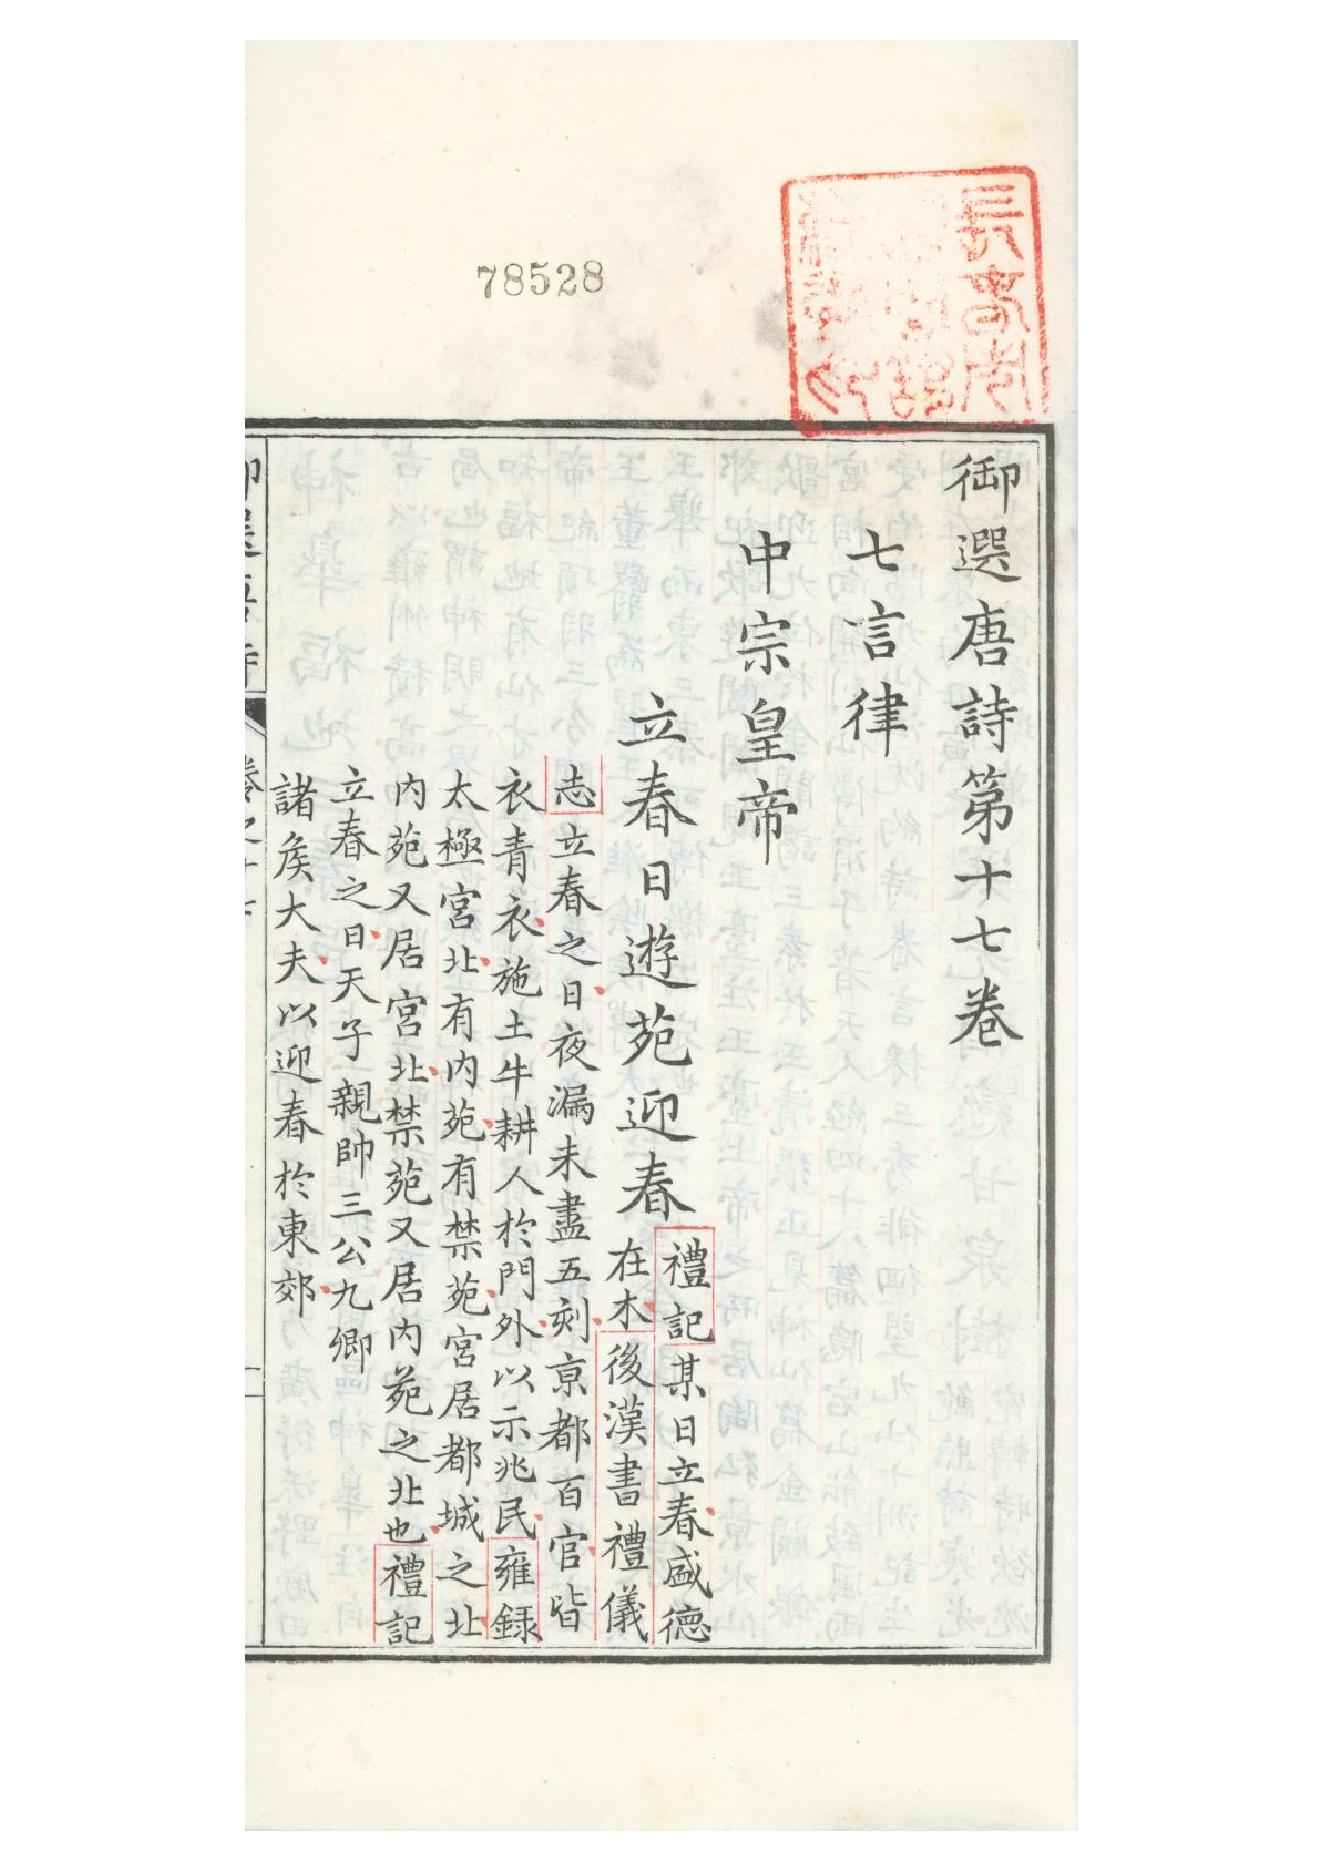 78528
御選唐詩第十七卷
七言律
中宗皇帝
立春日遊苑迎春
禮記某日立春盛德
在木後漢書禮儀
志立春之日夜漏未盡五刻京都百官皆
衣青衣施土牛耕人於門外以示兆民雍録
太極宮北有内苑有禁苑宮居都城之北
内苑又居宮北禁苑又居内苑之北也禮記
立春之日天子親帥三公九卿
諸矦大夫以迎春於東郊